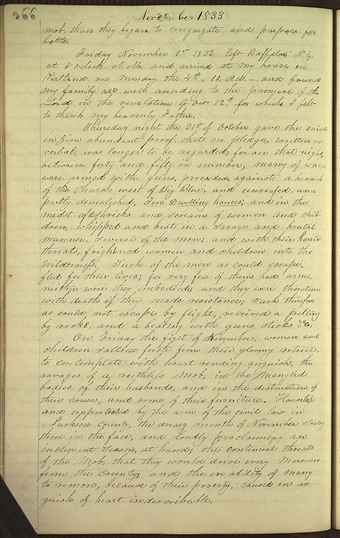 366
November 1833
mob, than they began to congregate and prepare for
battle.
Friday November 1st 1833. left Buffalo N.Y.
at 8 o'clock A.M. and arrived at my house in
Kirtland on Monday the 4th, 10, A.M. and found
my family are well according to the promise of the
Lord in the revelation of Oct 12th for which I felt
to thank my heavenly Father.
Thursday night the 31st of October gave the saints
in Zion abundant proof, that no pledge, written or
verbal, was longer to be regarded; for on that night,
between forty and fifty in number, many of whom
were armed with guns, proceeded against a branch
of the Church west of Big Blue, and unroofed, and
partly demolished, Ten Dwelling houses; and in the
midst of shrieks and screams of women and chil
dren, whipped and beat in a savage and brutal
manner, several of the men; and with their horrid
threats, frightened women and children into the
wilderness. Such of the men as could escape,
fled for their lives; for very few of them had arms,
neither were they embodied; and they were threatened
with death if they made resistance; Such therefore
as could not escape by flight, received a pelting
by rocks, and a beating with guns sticks &c.
On Friday the first of November, women and
children sallied forth from their gloomy retreats
to contemplate with heart rending anguish the
ravages of a ruthless Mob, in the Mangled
bodies of their husbands, and in the destruction of
their houses, and some of their furniture. Houseless
and unprotected by the arm of the civil law in
Jackson County, the dreary month of November staring
them in the face, and loudly proclaiming an
inclement season at hand; the continual threats
of the Mob, that they would drive every Mormon
from the County; and the inability of many
to remove, because of their poverty, caused an an-
guish of heart indescribable.